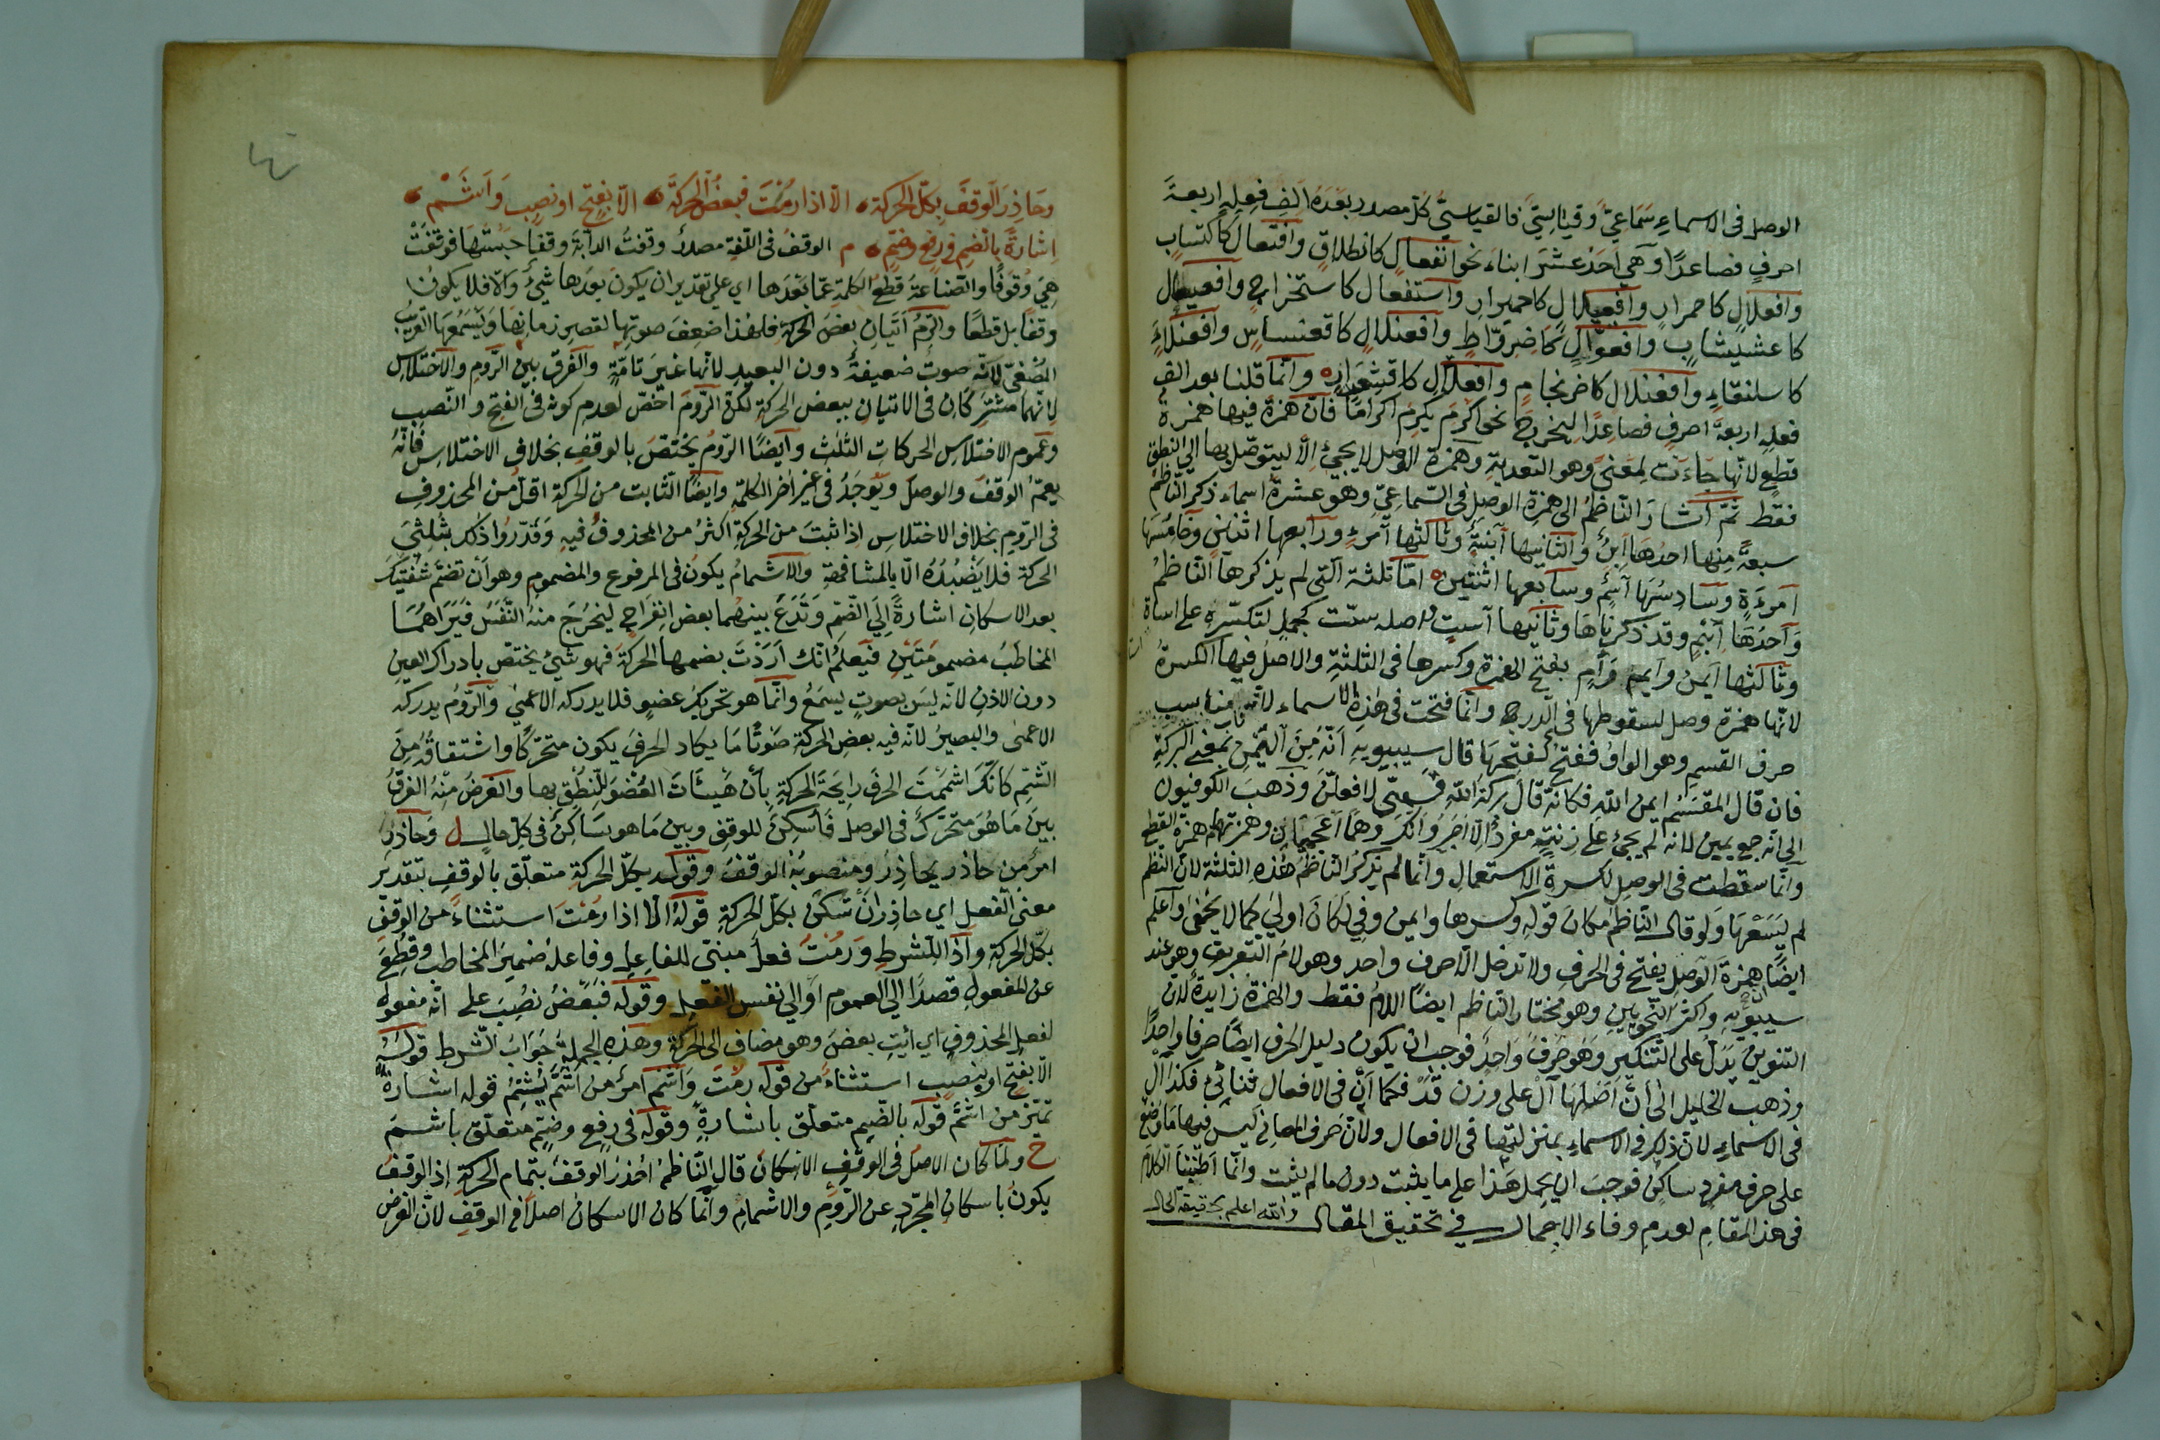 الوصل فى الاسماء سماعيّ وقياسيّ فالقياسيّ كلّ مصدر بعد الف فعله اربعة
احرف فصاعدًا وهي احد عشر ابناء نحو انفعال كانطلاق وافتعال كاكتساب
وافعلال كاحمرار وافعيلال كاحميرار واستفعال كاستخراج وافعيعال
كاعشيشاب وافعوّال كاخروّاط وافعنلال كاقعنساس وافعنلاء
كاسلنقاء وافعنلال كاحرنجام وافعلّال كاقشعرار وانّما قلنا بعد الف
فعله اربعة احرف فصاعدًا ليخرج نحو اكرم يكرم اكرامًا فانّ همزة فيها همزة
قطع لانّها جاءت لمعنى وهو التعدية وهمزة الوصل لا يجيء الّا ليتوصّل بها الى النطق
فقط ثمّ اشار النّاظم الى همزة الوصل فى السّماعيّ وهو عشرة اسماء ذكر النّاظم
سبعة منها احدها ابن والثانيها ابنة وثالثها امرء ورابعها اثنين وخامسها
امرءة وسادسها اسم وسابعها اثنتين امّا ثلثة الّتى لم يذكرها النّاظم
واحدها ابنم وقد ذكرناها وثانيها است اصله سته كجمل لتكسّره على استاه
وثالثها ايمن وايم وام بفتح الهمزة وكسرها فى الثلثة والاصل فيها الكسرة
لانّها همزة وصل لسقوطها فى الدرج وانّما فتحت فى هذه الاسماء لانّه ناب مناب
حرف القسم وهو الواو ففتح لفتحها قال سيبويه انّه من اليمن بمعنى البركة
فان قال المقسم ايمن الله فكانّه قال بركة الله قسمى لافعلنّ وذهب الكوفيون
الى انّه جمع يمين لانه لم يجئ على زنته مفرد الّا اجر وانك وهما اعجميان وهمزتهم همزة القطع
وانّما سقطت فى الوصل لكسرة الاستعمال وانّما لم يذكر الناظم هذه الثلثة لانّ النظم
لم يسعها ولو قال النّاظم مكان قوله وكسرها وايمن وفى لكان اولى كما لا يخفى واعلم
ايضًا همزة الوصل يفتح فى الحرف ولا تدخل الّا حرف واحد وهو لام التعريف وهو عند
سيبويه واكثر النّحويين وهو مختار النّاظم ايضًا اللام فقط والهمزة زايدة لانّ
التنوين يدلّ على التنكير وهو حرف واحد فوجب ان يكون دليل الحرف ايضًا حرفا واحدًا
وذهب الخليل الى انّ اصلها ال على وزن قد فكما انّ فى الافعال ثنائى فكذا ال
فى الاسماء لانّ ذلك فى الاسماء بمنزلتها فى الافعال ولانّ حرف المعانى ليس فيها ما وضع
على حرف مفرد ساكن فوجب ان يحمل هذا على ما يثبت دون ما لم يثبت وانّما اطنبنا الكلام
فى هذا المقام لعدم وفاء الاجمال فى تحقيق المقال والله اعلم بحقيقة الحال
وحاذر الوقف بكلّ الحركة الّا اذا رمت فبعض الحركة الّا بفتح او نصب واشم
اشارة بالضم فى رفع وضم م الوقف فى اللّغة مصدر وقفت الدابّة وقفا حبستها فوقفت
هى وقوفًا والصّناعة قطع الكلمة عمّا بعدها اى على تقدير ان يكون بعدها شىء والّا فلا يكون
وقفا بل قطعًا والرّوم اتيان بعض الحركة فلهذا ضعف صوتها لقصر زمانها ويسمعها القريب
المصغى لانّه صوت ضعيفة دون البعيد لانّها غير تامّة والفرق بين الرّوم والاختلاس
لانّهما مشتركان فى الاتيان ببعض الحركة لكنّ الرّوم اخصّ لعدم كونه فى الفتح والنّصب
وعموم الاختلاس الحركات الثلث وايضًا الرّوم يختصّ بالوقف بخلاف الاختلاس فانّه
يعمّ الوقف والوصل ويوجد فى غير آخر الكلمة وايضًا الثّابت من الحركة اقلّ من المحذوف
فى الرّوم بخلاف الاختلاس اذا ثبت من الحركة اكثر من المحذوف فيه وقدّروا ذلك بثلثى
الحركة فلا يضبده الّا بالمشافهة والاشمام يكون فى المرفوع والمضموم وهو ان تضمّ شفتيك
بعد الاسكان اشارة الى الضّم وتدع بينهما بعض انفراج ليخرج منه النّفس فيراهما
المخاطب مضمومتين فيعلم انك اردت بضمها الحركة فهو شىء يختصّ بادراك العين
دون الاذن لانّه ليس بصوت يسمع وانّما هو تحريك عضو فلا يدركه الاعمى والرّوم يدركه
الاعمى والبصير لانّه فيه بعض الحركة صوتًا ما يكاد الحرف يكون متحرّكًا واشتقاقه من
الشّم كانّك اشممت الحرف رايحة الحركة بأن هيئات العضو للنطق بها والغرض منه الفرق
بين ما هو متحرّك فى الوصل فاسكن للوقف وبين ما هو ساكن فى كلّ حال ل وحاذر
امر من حاذر يحاذر ومنصوبه الوقف وقوله بكلّ الحركة متعلّق بالوقف بتقدير
معنى الفعل اى حاذر ان تسكن بكلّ الحركة قوله الّا اذا رمت استثناء من الوقف
بكلّ الحركة واذ للشرط ورمت فعل مبنىّ للفاعل وفاعله ضمير المخاطب وقطع
عن المفعول قصدًا الى العموم او الى نفس الفعل وقوله فبعض نصب على انّه مفعول
لفعل المحذوف اى ائت بعض وهو مضاف الى الحركة وهذه الجملة جواب الشرط قوله
الّا بفتح او بنصب استثناء من قوله رمت واشم امر من اشمّ يشمّ قوله اشارة
تميّز من اشمّ قوله بالضّم متعلّق باشارة وقوله فى رفع وضمّ متعلّق باشم
ح ولمّا كان الاصل فى الوقف الاسكان قال النّاظم احذر الوقف بتمام الحركة اذ الوقف
يكون باسكان المجرّد عن الرّوم والاشمام وانّما كان الاسكان اصلا فى الوقف لانّ الغرض